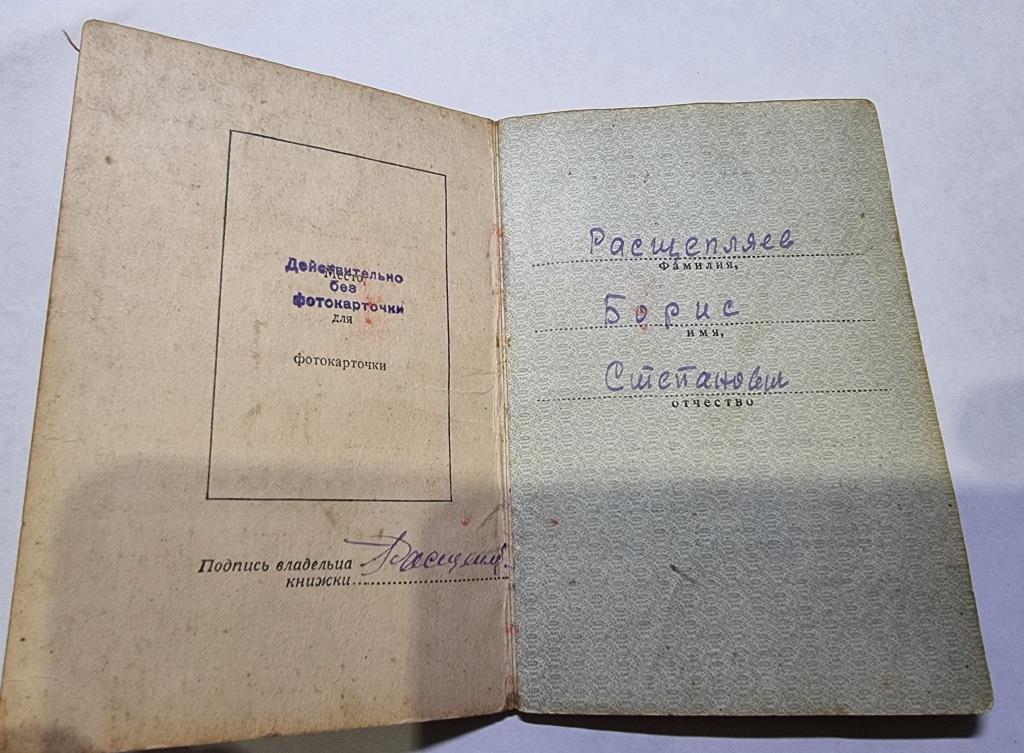 Действительно
Место
без
фотокарточки
для
фотокарточки
Подпись владельца
книжки
Расщепляев
фамилия,
Борис
имя,
Степанович
отчество